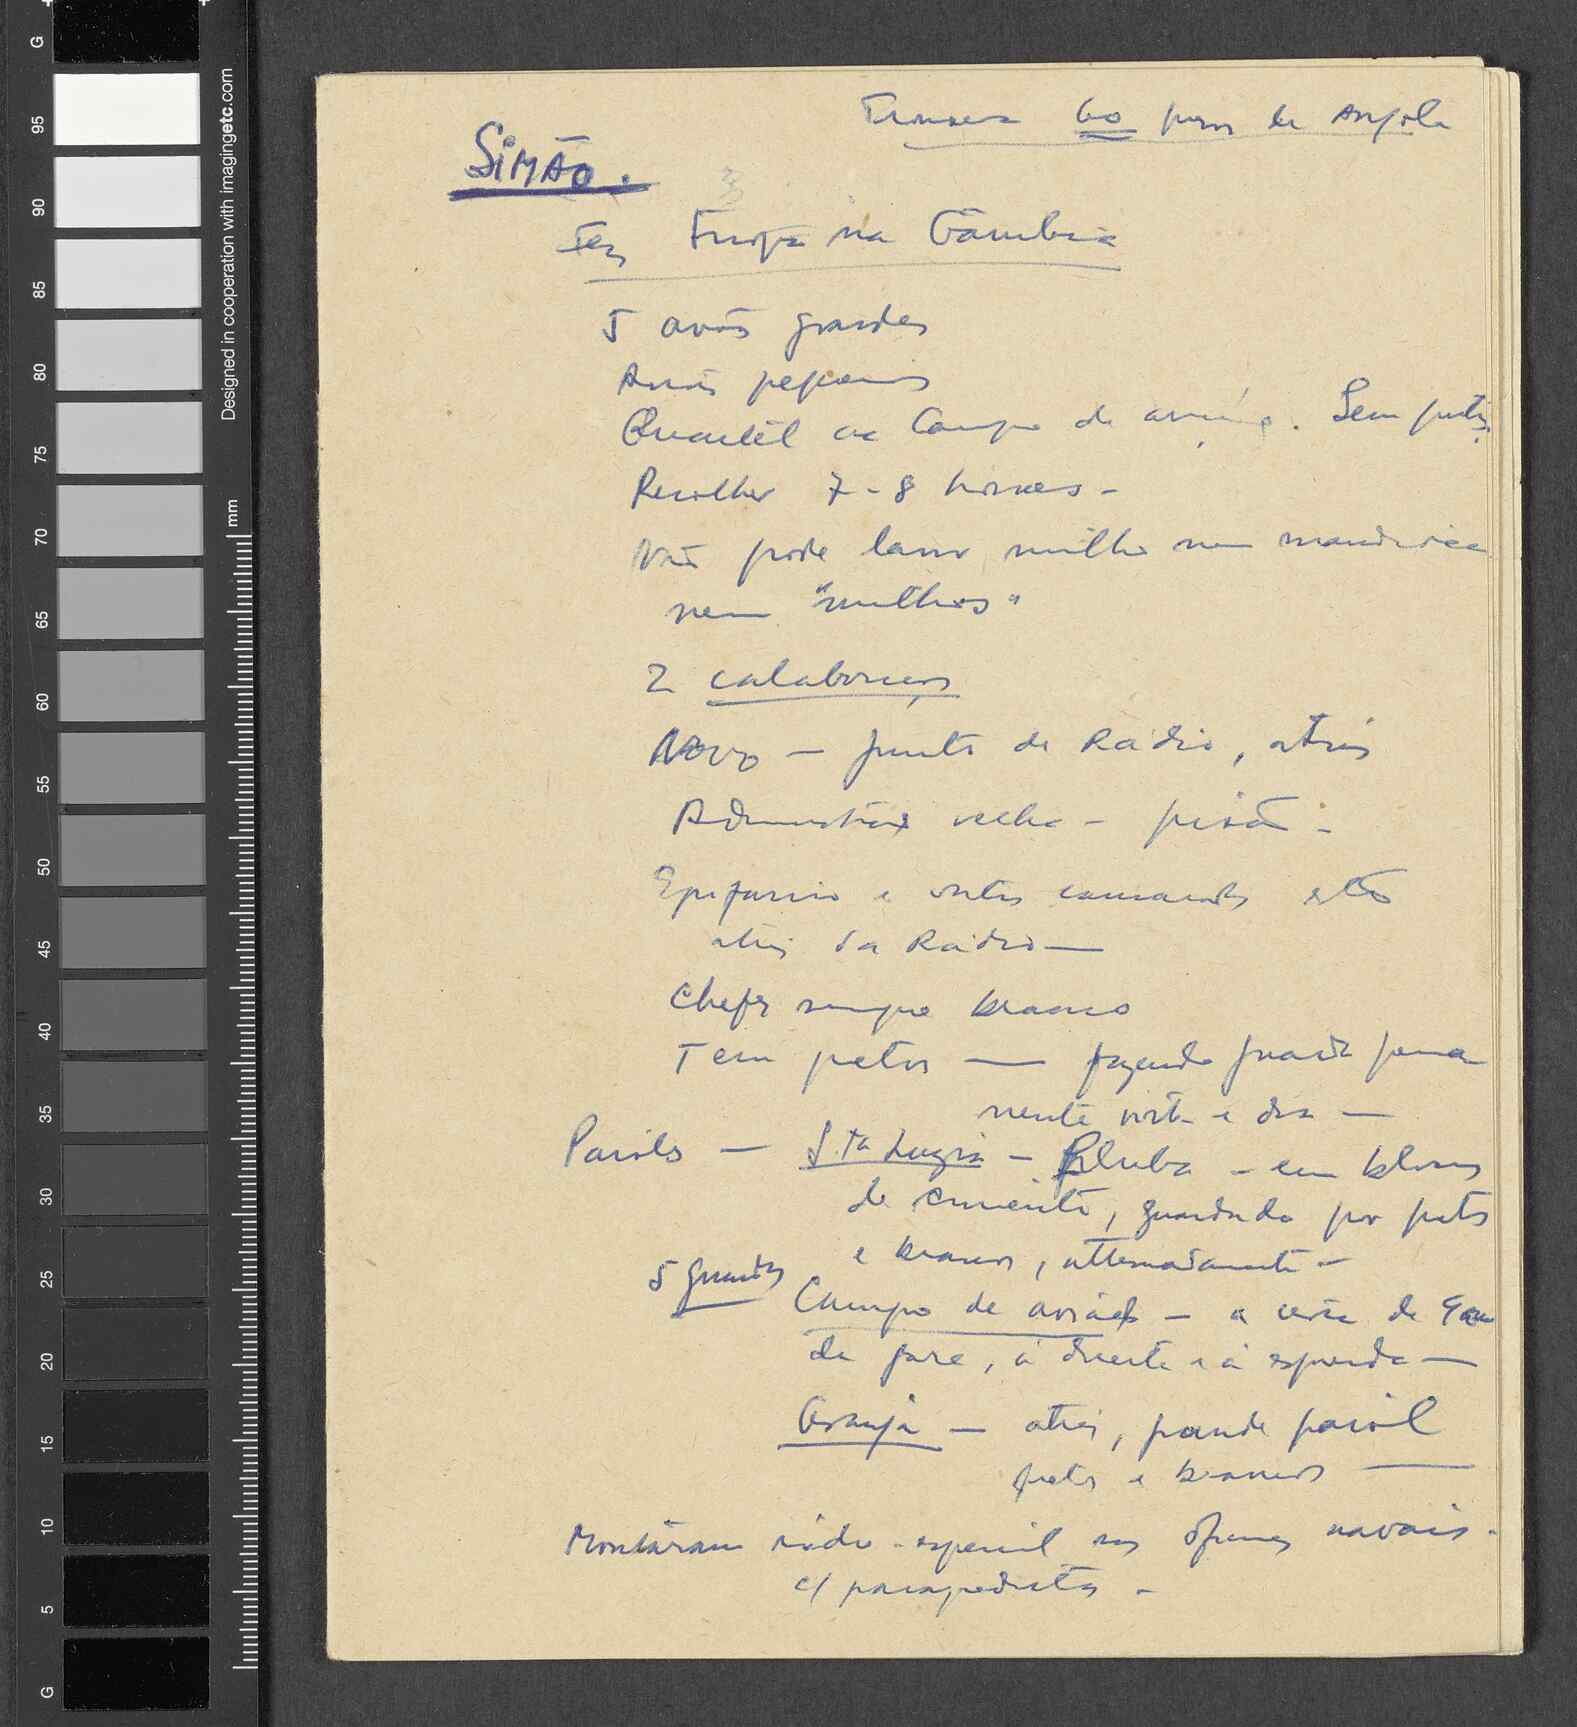 Trouxera 60 para de Angola
SIMÃO.
Tem Tropa na Gâmbia
5 aviões grandes
Aviões pequenos
Quartel no Campo de aviação. Sem pretos.
Recolher 7-8 horas -
Não pode lavrar milho nem mandioca
nem "milhos"
2 calabouços
Novo - junto da Rádio, atrás
Administração velha - prisão -
Epifânio e outros camaradas estão
atrás da Rádio -
Chefes sempre branco
Tem pretos - fazendo guarda perma
nente noite e dia -
Paióis - Sta Luzia - - em blocos
de cimento, guardado por pretos
e brancos, alternadamente -
5 guardas
Campo de aviação - a cerca de
da gare, à direita e à esquerda -
Granja - atrás, grande paiol
pretos e brancos -
Montaram rádio especial nas oficinas navais -
c/ paraquedistas -
G
95
90
85
80
75
70
65
60
55
50
45
40
35
30
25
20
15
10
5
G
mm
Designed in cooperation with imagingetc.com